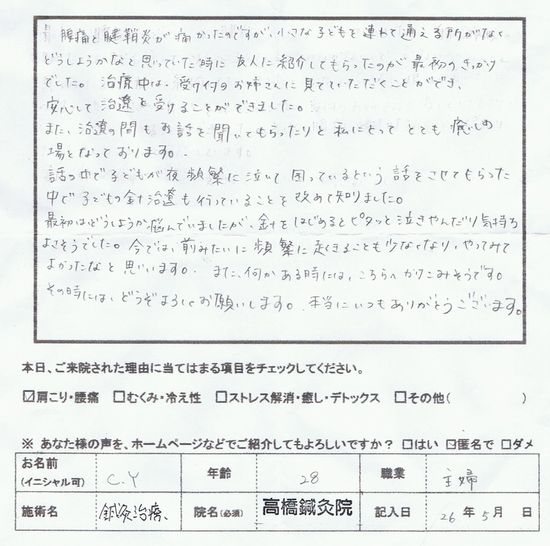 腰痛と腱鞘炎が痛かったのですが、小さな子どもを連れて通える所がなく
どうしようかなと思っていた時に友人に紹介してもらったのが最初のきっかけ
でした。治療中は、受付のお姉さんに見ていていただくことができ、
安心して治療を受けることができました。
また、治療の間もお話を聞いてもらったりと私にとってとても癒しの
場となっております。
話の中で子どもが夜頻繁に泣いて困っているという話をさせてもらった
中で子どもの針治療も行っていることを改めて知りました。
最初はどうしようか悩んでいましたが、針をはじめるとピタッと泣きやんだり気持ち
よさそうでした。今では、前みたいに頻繁に起きることも少なくなり、やってみて
よかったなと思います。また、何かある時には、こちらへかけこみそうです。
その時には、どうぞよろしくお願いします。本当にいつもありがとうございます。
本日、ご来院された理由に当てはまる項目をチェックしてください。
☑肩こり・腰痛 □むくみ・冷え性 □ストレス解消・癒し・デトックス □その他( )
※ あなた様の声を、ホームページなどでご紹介してもよろしいですか? □はい ☑匿名で □ダメ
お名前 (イニシャル可) C.Y 年齢 28 職業 主婦
施術名 鍼灸治療、 院名(必須) 高橋鍼灸院 記入日 26年5月 日